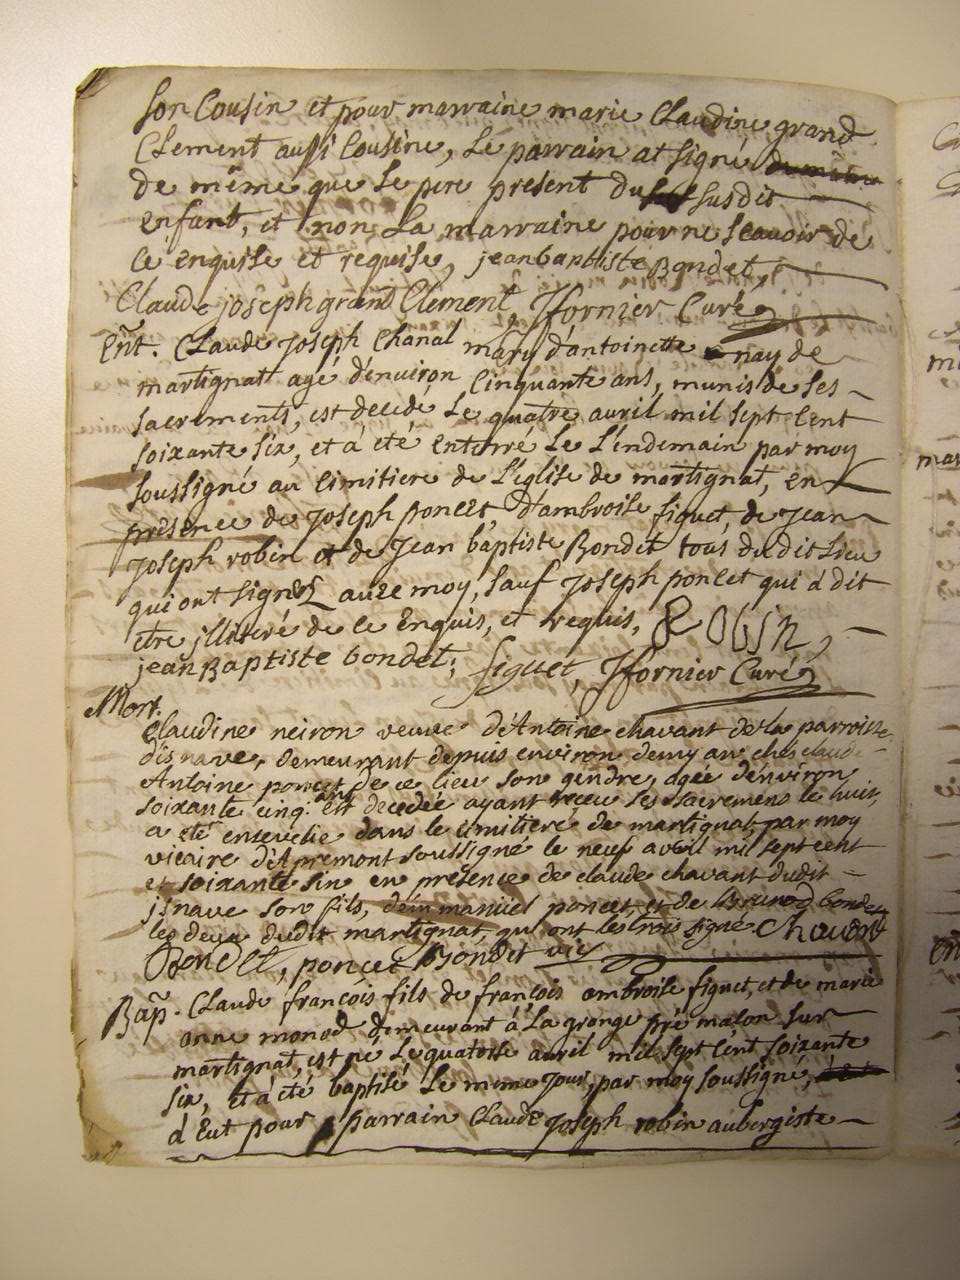 son Cousin et pour marraine marie Claudine grand
Clement aussi Cousine, Le parrain at signé
de même que Le pere present du susdit
enfant, et non La marraine pour ne scavoir de
Ce enquise et requise, jean baptiste Bondet,
Claude joseph grand Clement, JFornier Curé
Ent. Claude Joseph Chanal mary d'antoinette nay de
martignat agé d'environ Cinquante ans, munis de ses
sacrements, est decedé Le quatre avril mil sept Cent
soixante six, et à eté enterré Le L'endemain par moy
soussigné au Cimitiere de L'église de martignat, en
presence de Joseph poncet, d'ambroise figuet, de Jean
Joseph robin et de Jean baptiste Bondet tous du dit Lieu
qui ont signéz avec moy, sauf Joseph poncet qui à dit
etre jlliteré de Ce Enquis, et requis, ROBIN,
jean Baptiste bondet, figuet, JFornier Curé
Mort.
Claudine neiron veuve d'Antoine chavant de la paroisse
d'isnave, demeurant depuis environ demy an ches claude
Antoine poncet de ce lieu son gendre, agée d'environ
soixante cinq ans est decedée ayant receu ses sacremens le huit,
a eté ensevelie dans le cimitiere de martignat, par moy
vicaire d'Apremont soussigné le neuf avril mil sept cent
et soixante six en présence de claude chavant dudit
jsnave son fils, d'emmanuel poncet, et de bondet
les deux dudit martignat, qui ont les trois signé Chavant
poncet Bondet vic
Bap. Claude françois fils de françois ambroise figuet, et de marie
anne monod demeurant à La grange pré malon sur
martignat, est né Le quatorse avril mil sept Cent soixante
six, et à été baptisé Le meme jour, par moy soussigné,
à Eut pour parrain Claude Joseph robin aubergiste